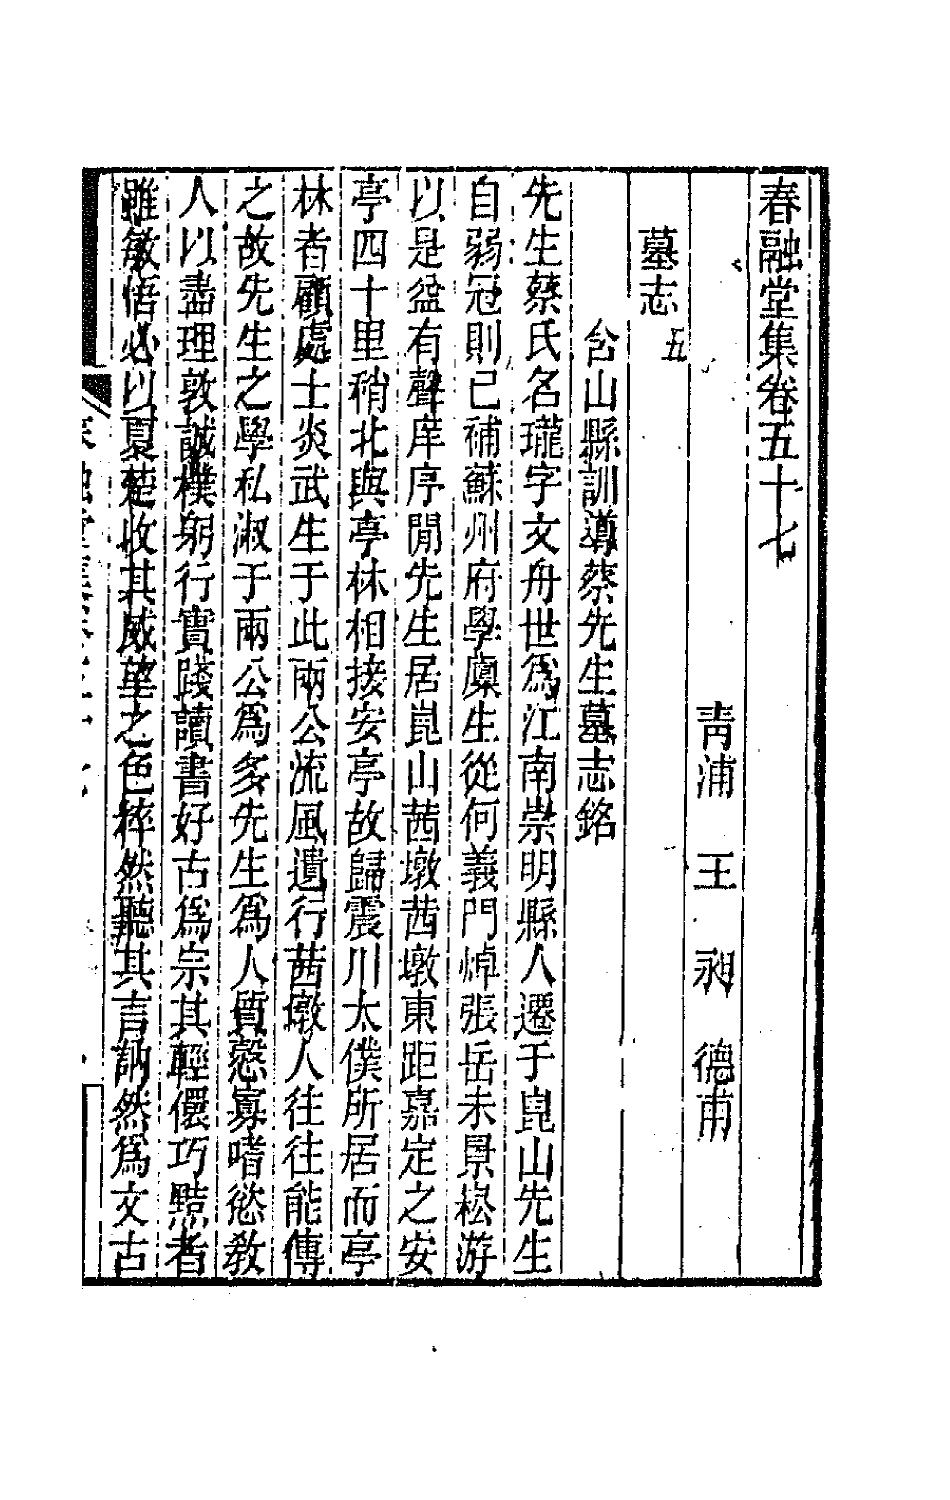 春融堂集卷五十七
青浦 王 昶 德甫
墓志五
含山縣訓導蔡先生墓志銘
先生蔡氏名瓏字文舟世爲江南崇明縣人遷于崑山先生
自弱冠則已補蘇州府學廩生從何義門焯張岳未景崧游
以是益有聲庠序閒先生居崑山茜墩茜墩東距嘉定之安
亭四十里稍北與亭林相接安亭故歸震川太僕所居而亭
林者顧處士炎武生于此兩公流風遺行茜墩人往往能傳
之故先生之學私淑于兩公爲多先生爲人質慤寡嗜慾教
人以盡理敦誠樸躬行實踐讀書好古爲宗其輕儇巧黠者
雖敏悟必以夏楚收其威望之色粹然聽其言訥然爲文古